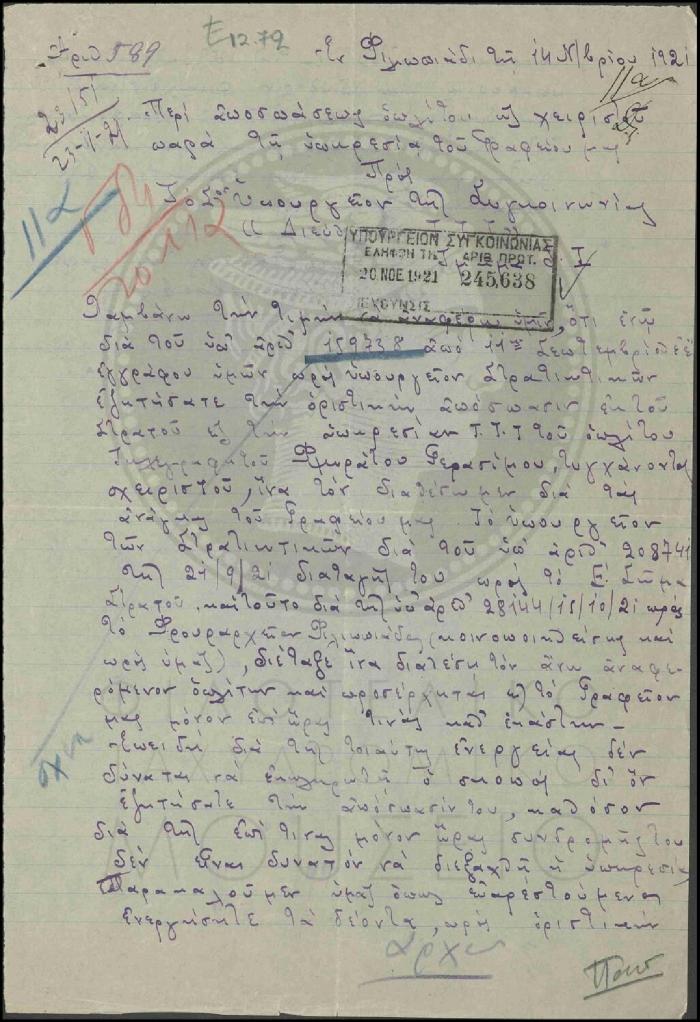 Ἀριθ 589
Ε 12.72
Ἐν Φιλιππιάδι τῇ 14 Ν/βρίου 1921
11α
23151
23-11-21
Περὶ ἀποσπάσεως ὁπλίτου ὡς χειριστοῦ
παρὰ τῇ ὑπηρεσίᾳ τοῦ Γραφείου μας
Πρὸς
11α
20112
Τὸ Σὸν Ὑπουργεῖον τῆς Συγκοινωνίας
ΥΠΟΥΡΓΕΙΟΝ ΣΥΓΚΟΙΝΩΝΙΑΣ
ΕΛΗΦΘΗ ΤΗ ΑΡΙΘ. ΠΡΩΤ.
20 ΝΟΕ 1921 245,638
Λαμβάνω τὴν τιμὴν νὰ ἀναφέρω ὑμῖν, ὅτι ἐνῷ
διὰ τοῦ ὑπ' ἀριθ 159738 ἀπὸ 11ης Σεπτεμβρίου ἐ.ἔ
ἐγγράφου ὑμῶν πρὸς ὑπουργεῖον Στρατιωτικῶν
ἐζητήσατε τὴν ὁριστικὴν ἀπόσπασιν ἐκ τοῦ
Στρατοῦ εἰς τὴν ὑπηρεσίαν Τ.Τ.Τ τοῦ ὁπλίτου
Τηλεγραφητοῦ Γερασίμου, τυγχάνοντα
χειριστοῦ, ἵνα τὸν διαθέσωμεν διὰ τὰς
ἀνάγκας τοῦ Γραφείου μας Τὸ ὑπουργεῖον
τῶν Στρατιωτικῶν διὰ τοῦ ὑπ' ἀριθ 208741
τῆς 21/9/21 διαταγῆς του πρὸς τὸ Ε! Σῶμα
Στρατοῦ, καὶ τοῦτο διὰ τῆς ὑπ' ἀριθ 29144/15/10/21 πρὸς
τὸ Φρουραρχεῖον Φιλιππιάδος (κοινοποιηθείσης καὶ
πρὸς ὑμᾶς), διέταξε ἵνα διαθέσῃ τὸν ἄνω ἀναφε-
ρόμενον ὁπλίτην καὶ προσέρχηται εἰς τὸ Γραφεῖον
μας μόνον ἐπὶ ὥρας τινὰς καθ' ἑκάστην -
Ἐπειδὴ διὰ τῆς τοιαύτης ἐνεργείας δὲν
δύναται νὰ ἐκπληρωθῇ ὁ σκοπὸς δι' ὃν
ἐζητήσατε τὴν ἀπόσπασίν του, καθόσον
διὰ τῆς ἐπί τινας μόνον ὥρας συνδρομῆς του
δὲν εἶναι δυνατὸν νὰ διεξαχθῇ ἡ ὑπηρεσία
Παρακαλοῦμεν ὑμᾶς ὅπως εὐαρεστούμενος
ἐνεργήσητε τὰ δέοντα, πρὸς ὁριστικὴν